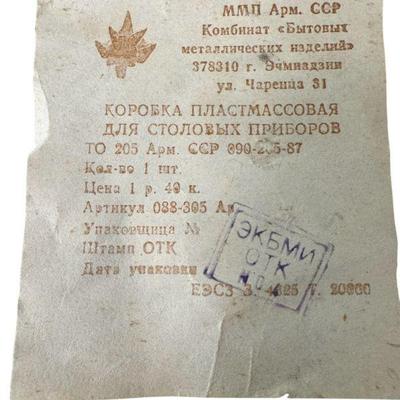 ММП Арм. ССР
Комбинат «Бытовых
металлических изделий»
378310 г. Эчмиадзин
ул. Чаренца 31
КОРОБКА ПЛАСТМАССОВАЯ
ДЛЯ СТОЛОВЫХ ПРИБОРОВ
ТО 205 Арм. ССР 890-205-87
Кол-во 1 шт.
Цена 1 р. 40 к.
Артикул 088-305
Упаковщица №
Штамп ОТК
Дата упаковки
ЭКБМИ
ОТК
ЕЭСЗ Т. 20000